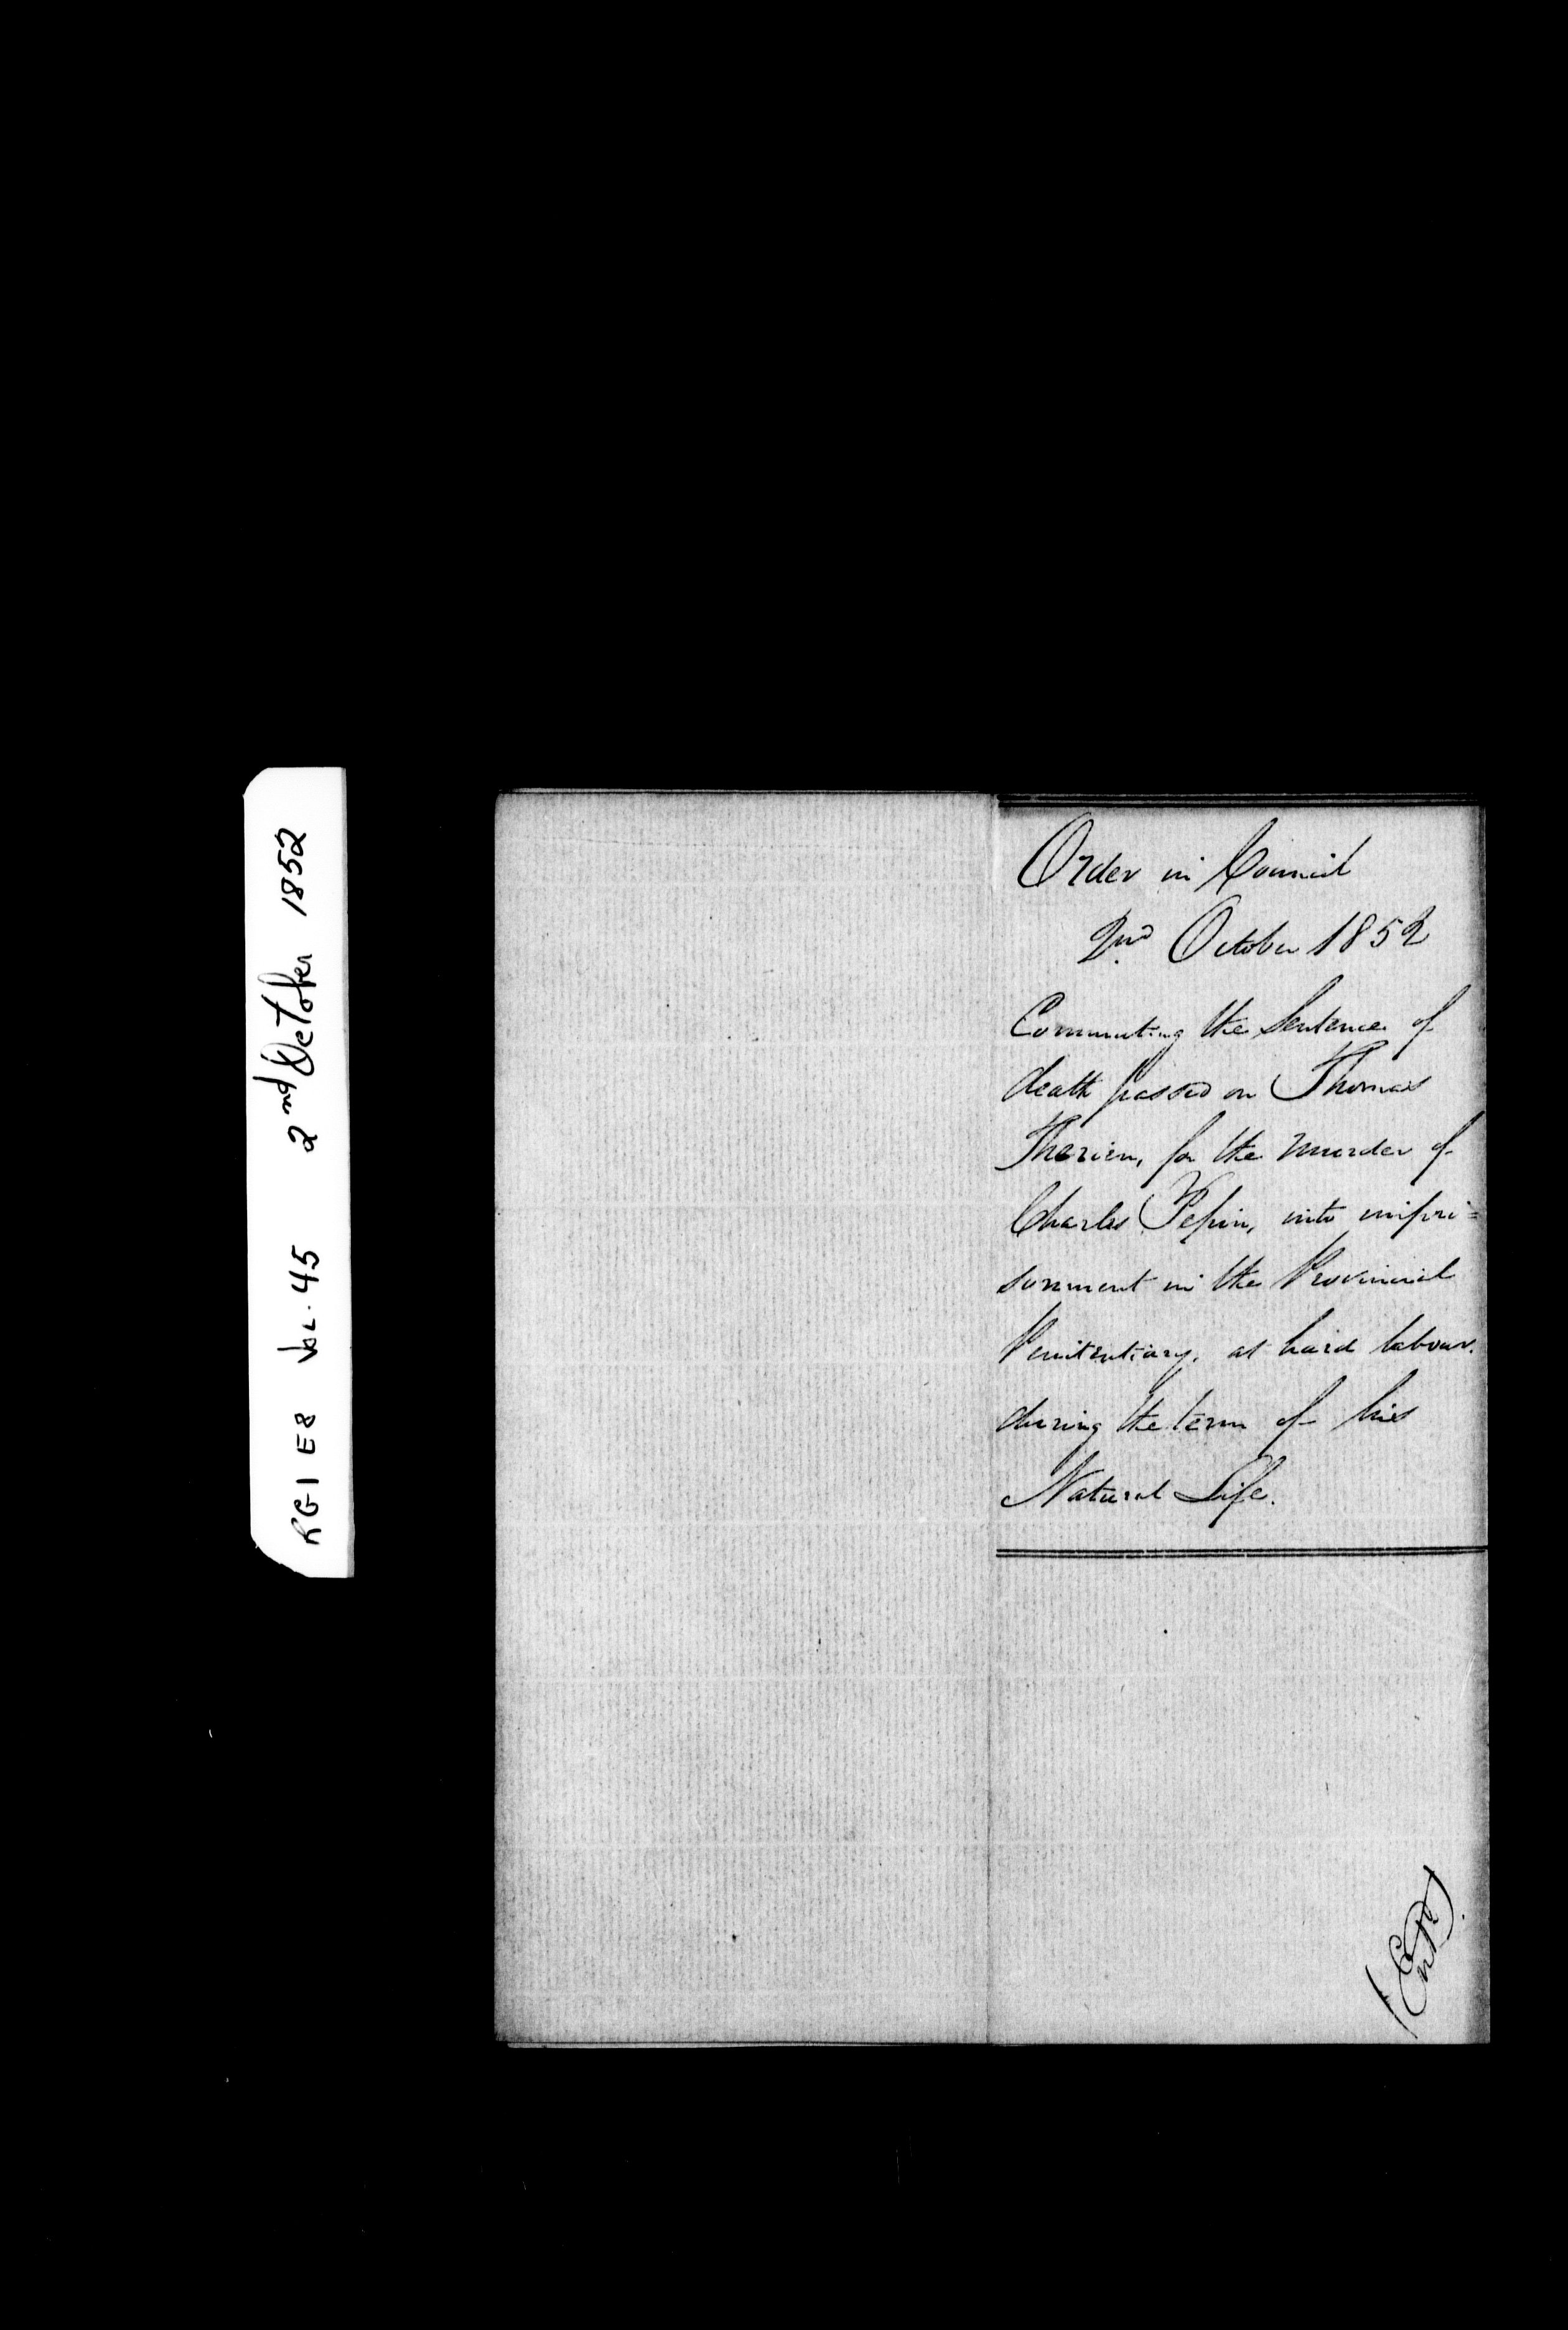 RG1 E8 Vol. 45 2nd October 1852
Order in Council
2nd October 1852
Commuting the Sentence of
death passed on Thomas
Therien, for the Murder of
Charles Pepin, into impri=
sonment in the Provincial
Penitentiary, at hard labour.
during the term of his
Natural Life.
(Entd)